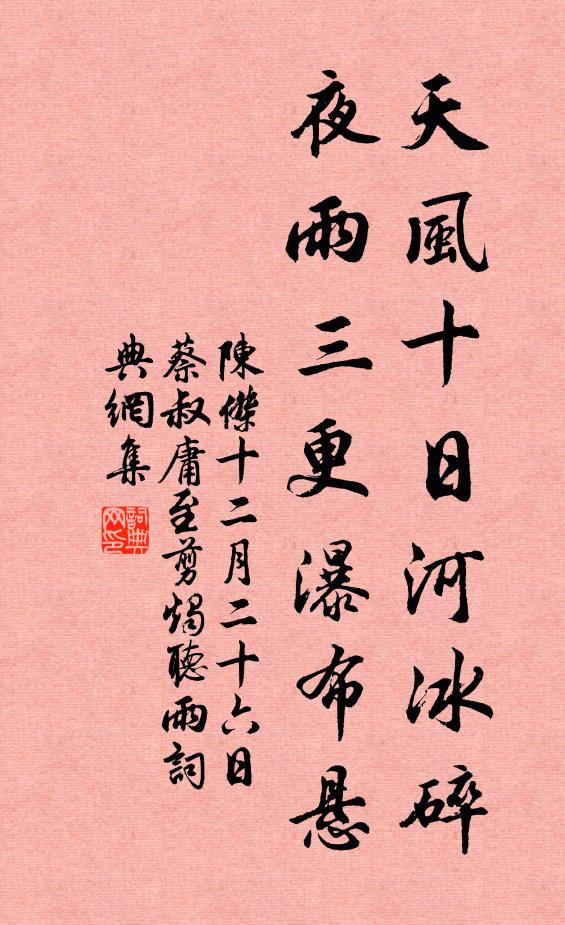 天風十日河冰碎
夜雨三更瀑布懸
陳傑十二月二十六日
蔡叔庸至剪燭聽雨詞
典網集
詞典
网印